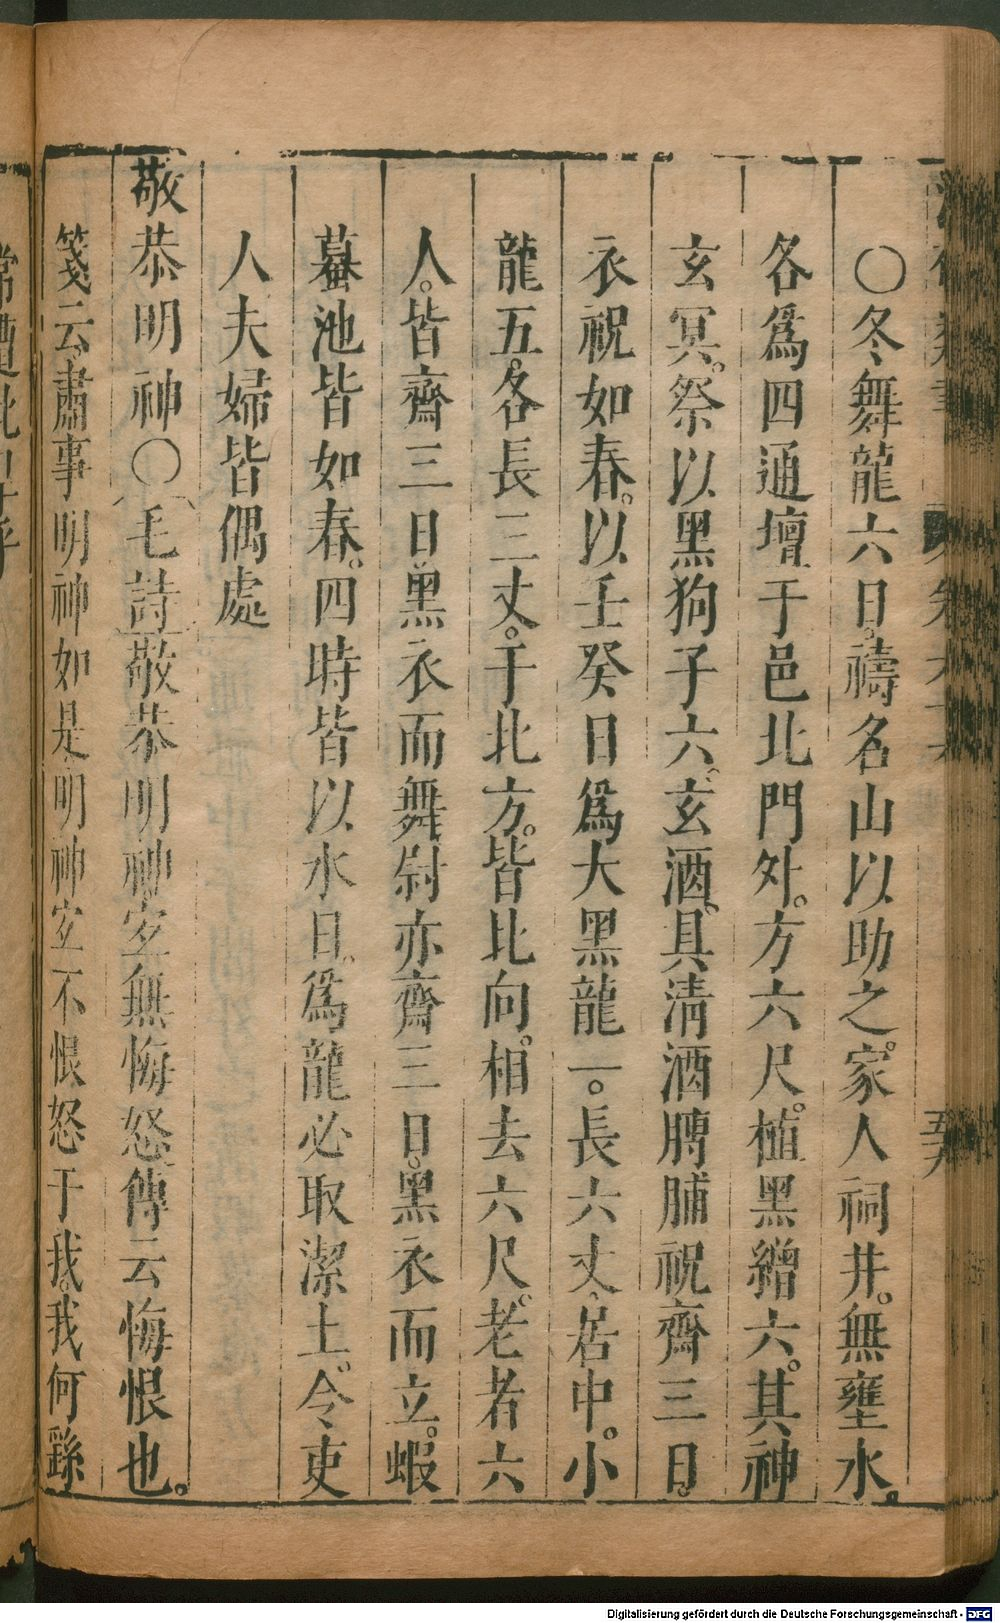 ○冬舞龍六日。禱名山以助之。家人祠井。無壅水。
各爲四通壇于邑北門外。方六尺。植黑繒六。其神
玄冥。祭以黑狗子六。玄酒。具清酒膊脯祝齊三日。
衣祝如春。以壬癸日爲大黑龍一。長六丈。居中。小
龍五。各長三丈。于北方。皆北向。相去六尺。老者六
人。皆齋三日黑衣而舞尉亦齋三日。黑衣而立。蝦
蟇池皆如春。四時皆以水日。爲龍必取潔土。令吏
人夫婦皆偶處
敬恭明神○毛詩敬恭明神宜無悔怒傳云悔恨也。
箋云肅事明神如是明神宜不恨怒于我。我何繇
五六
Digitalisierung gefördert durch die Deutsche Forschungsgemeinschaft - DFG